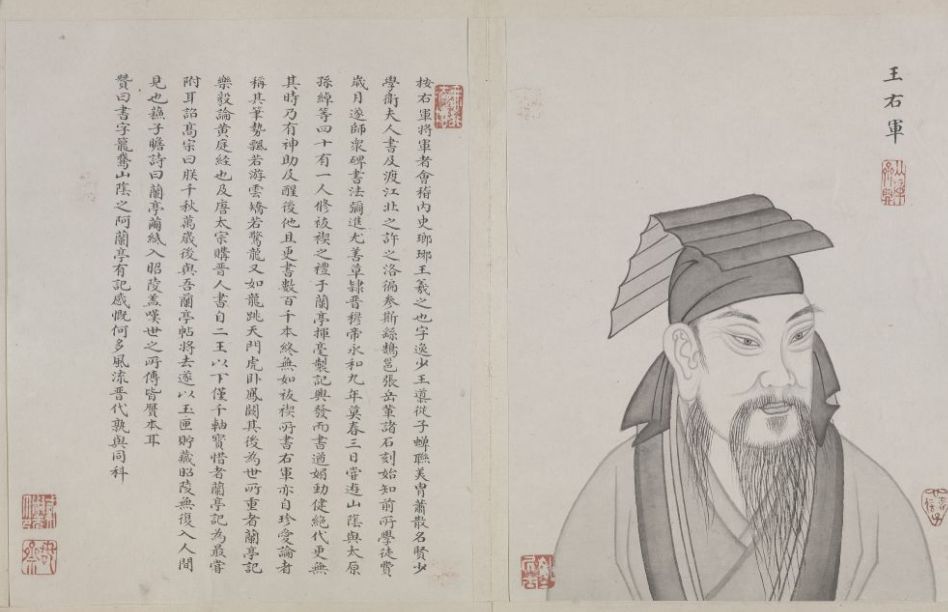 王右軍
按右軍將軍者會稽內史瑯瑘王羲之也字逸少王導從子蟬聯美胄蕭散名賢少
學衛夫人書及渡江北之許之洛徧參斯繇鵠邕張岳華諸石刻始知前所學徒費
歲月遂師衆碑書法彌進尤善草隸晋穆帝永和九年莫春三日嘗遊山陰與太原
孫綽等四十有一人修祓禊之禮于蘭亭揮毫製記興發而書遒媚勁健絕代更無
其時乃有神助及醒後他且更書數百千本終無如祓禊所書右軍亦自珍愛論者
稱其筆勢飄若游雲矯若驚龍又如龍跳天門虎卧鳳闕其後為世所重者蘭亭記
樂毅論黃庭經也及唐太宗購晋人書自二王以下僅千軸寶惜者蘭亭記為最嘗
附耳詔高宗曰朕千秋萬歲後與吾蘭亭帖將去遂以玉匣貯藏昭陵無復入人間
見也蘇子瞻詩曰蘭亭繭紙入昭陵盖嘆世之所傳皆贋本耳
贊曰書字籠鵞山陰之阿蘭亭有記感慨何多風流晋代孰與同科